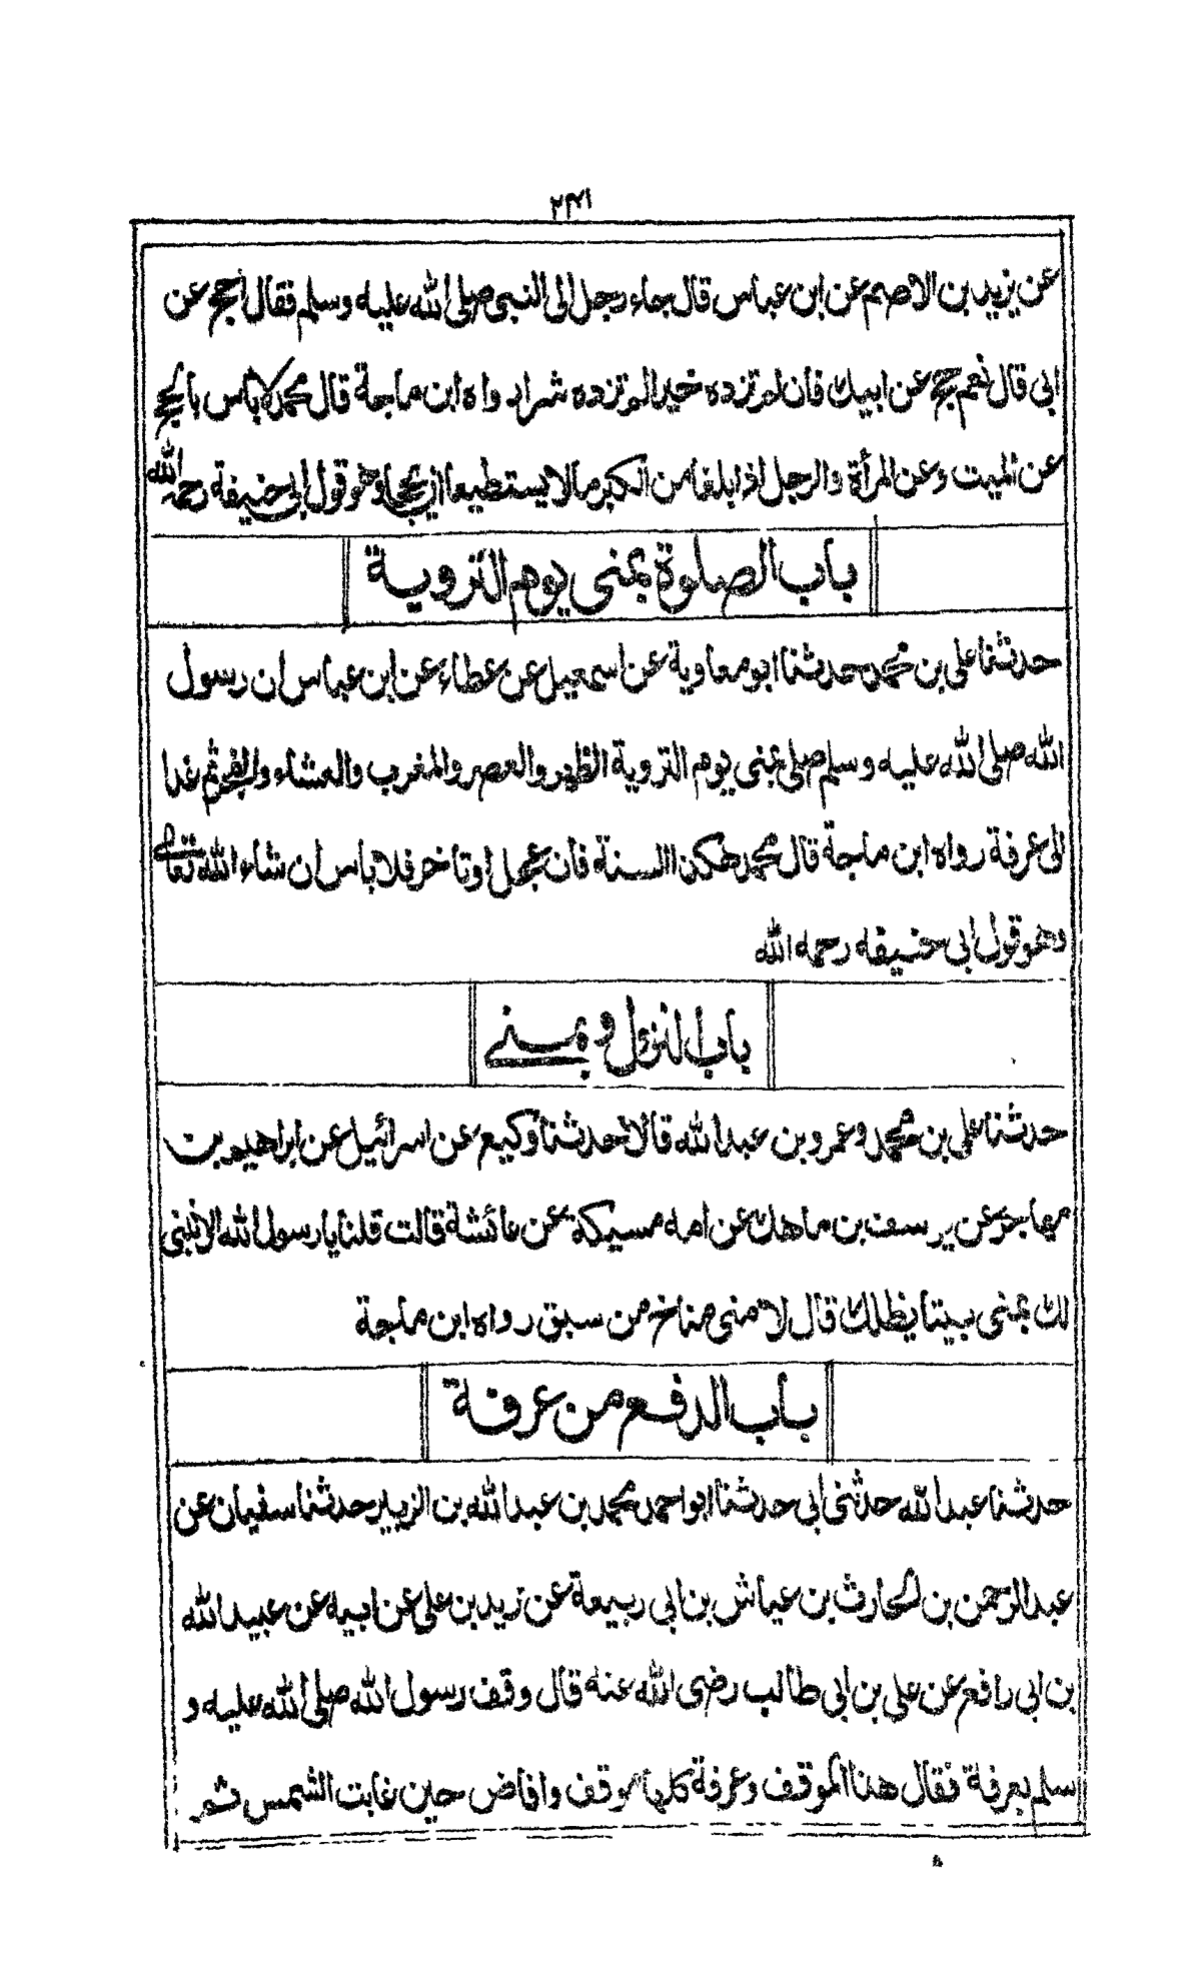 ٢٣١
عن يزيد بن الاصم عن ابن عباس قال جاء رجل الى النبى صلى الله عليه وسلم فقال أحج عن
ابى قال نعم حج عن ابيك فان لم تزده خيرا لم تزده شرا رواه ابن ماجة قال محمد لا بأس بالحج
عن الميت وعن المرأة والرجل اذا بلغا من الكبر ما لا يستطيعا ان يحجا وهو قول ابى حنيفة رحمه الله
باب الصلوة بمنى يوم التروية
حدثنا على بن محمد حدثنا ابو معاوية عن اسمعيل عن عطاء عن ابن عباس ان رسول
الله صلى الله عليه وسلم صلى بمنى يوم التروية الظهر والعصر والمغرب والعشاء والفجر ثم غدا
الى عرفة رواه ابن ماجة قال محمد هكذا السنة فان عجل او تاخر فلا باس ان شاء الله تعالى
وهو قول ابى حنيفه رحمه الله
باب النزول بمنى
حدثنا على بن محمد وعمرو بن عبد الله قالا حدثنا وكيع عن اسرائيل عن ابراهيم بن
مهاجر عن يوسف بن ماهك عن امه مسيكة عن عائشة قالت قلنا يا رسول الله الا نبنى
لك بمنى بيتا يظلك قال لا منى مناخ من سبق رواه ابن ماجة
باب الدفع من عرفة
حدثنا عبد الله حدثنى ابى حدثنا ابو احمد محمد بن عبد الله بن الزبير حدثنا سفيان عن
عبد الرحمن بن الحارث بن عياش بن ابى ربيعة عن زيد بن على عن ابيه عن عبيد الله
بن ابى رافع عن على بن ابى طالب رضى الله عنه قال وقف رسول الله صلى الله عليه و
سلم بعرفة فقال هذا الموقف وعرفة كلها موقف وافاض حين غابت الشمس ثم